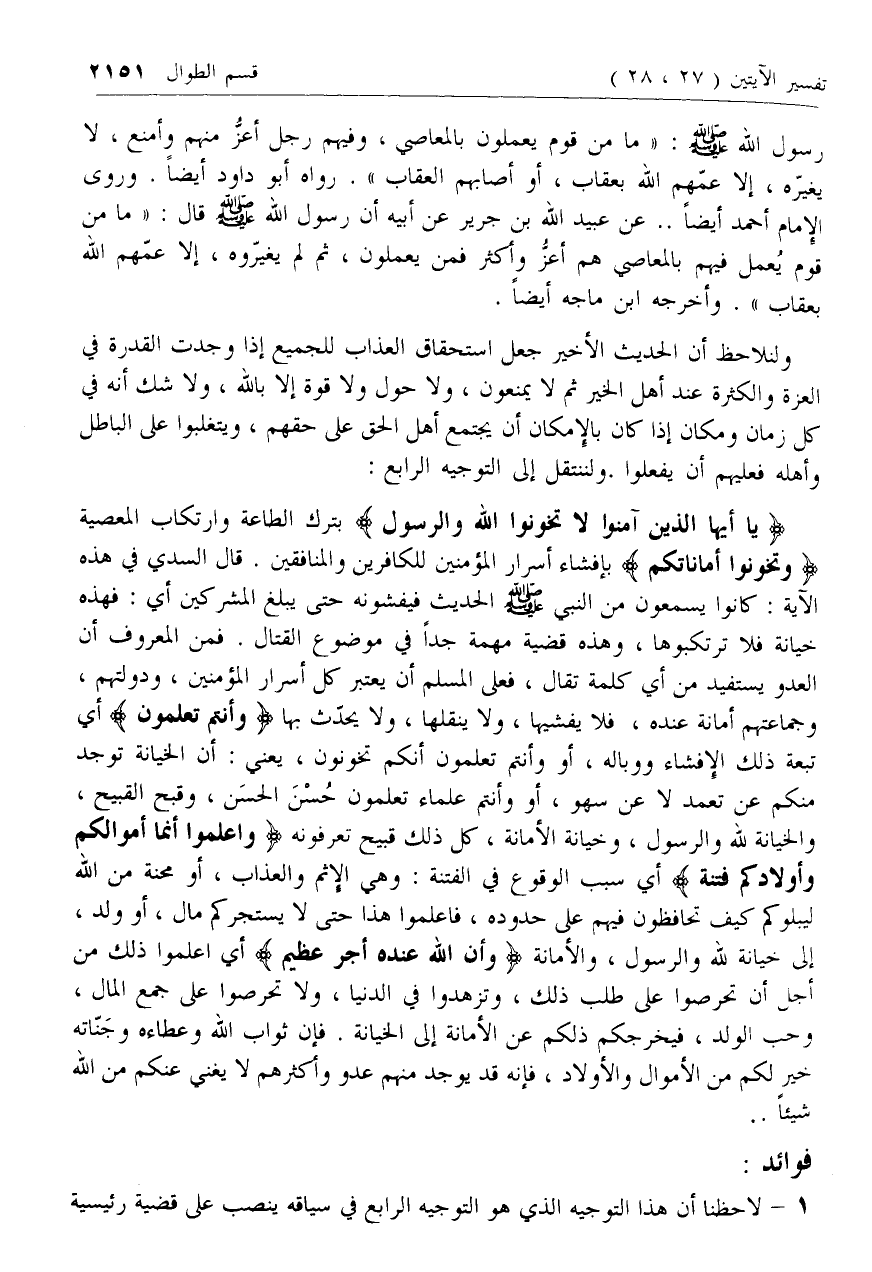 تفسير الآيتين ( ٢٧ ، ٢٨ )
قسم الطوال ٢١٥١
رسول الله ﷺ : « ما من قوم يعملون بالمعاصي ، وفيهم رجل أعزُّ منهم وأمنع ، لا
يغيّره ، إلا عمّهم الله بعقاب ، أو أصابهم العقاب » . رواه أبو داود أيضاً . وروى
الإمام أحمد أيضاً .. عن عبيد الله بن جرير عن أبيه أن رسول الله ﷺ قال : « ما من
قوم يُعمل فيهم بالمعاصي هم أعزُّ وأكثر فمن يعملون ، ثم لم يغيّروه ، إلا عمّهم الله
بعقاب » . وأخرجه ابن ماجه أيضاً .
ولنلاحظ أن الحديث الأخير جعل استحقاق العذاب للجميع إذا وجدت القدرة في
العزة والكثرة عند أهل الخير ثم لا يمنعون ، ولا حول ولا قوة إلا بالله ، ولا شك أنه في
كل زمان ومكان إذا كان بالإمكان أن يجتمع أهل الحق على حقهم ، ويتغلبوا على الباطل
وأهله فعليهم أن يفعلوا .ولننتقل إلى التوجيه الرابع :
﴿ يا أيها الذين آمنوا لا تخونوا الله والرسول ﴾ بترك الطاعة وارتكاب المعصية
﴿ وتخونوا أماناتكم ﴾ بإفشاء أسرار المؤمنين للكافرين والمنافقين . قال السدي في هذه
الآية : كانوا يسمعون من النبي ﷺ الحديث فيفشونه حتى يبلغ المشركين أي : فهذه
خيانة فلا ترتكبوها ، وهذه قضية مهمة جداً في موضوع القتال . فمن المعروف أن
العدو يستفيد من أي كلمة تقال ، فعلى المسلم أن يعتبر كل أسرار المؤمنين ، ودولتهم ،
وجماعتهم أمانة عنده ، فلا يفشيها ، ولا ينقلها ، ولا يحدّث بها ﴿ وأنتم تعلمون ﴾ أي
تبعة ذلك الإفشاء ووباله ، أو وأنتم تعلمون أنكم تخونون ، يعني : أن الخيانة توجد
منكم عن تعمد لا عن سهو ، أو وأنتم علماء تعلمون حُسْنَ الحسَن ، وقبح القبيح ،
والخيانة لله والرسول ، وخيانة الأمانة ، كل ذلك قبيح تعرفونه ﴿ واعلموا أنما أموالكم
وأولادكم فتنة ﴾ أي سبب الوقوع في الفتنة : وهي الإثم والعذاب ، أو محنة من الله
ليبلوكم كيف تحافظون فيهم على حدوده ، فاعلموا هذا حتى لا يستجركم مال ، أو ولد ،
إلى خيانة لله والرسول ، والأمانة ﴿ وأن الله عنده أجر عظيم ﴾ أي اعلموا ذلك من
أجل أن تحرصوا على طلب ذلك ، وتزهدوا في الدنيا ، ولا تحرصوا على جمع المال ،
وحب الولد ، فيخرجكم ذلكم عن الأمانة إلى الخيانة . فإن ثواب الله وعطاءه وجَنّاته
خير لكم من الأموال والأولاد ، فإنه قد يوجد منهم عدو وأكثرهم لا يغني عنكم من الله
شيئاً ..
فوائد :
١ – لاحظنا أن هذا التوجيه الذي هو التوجيه الرابع في سياقه ينصب على قضية رئيسية